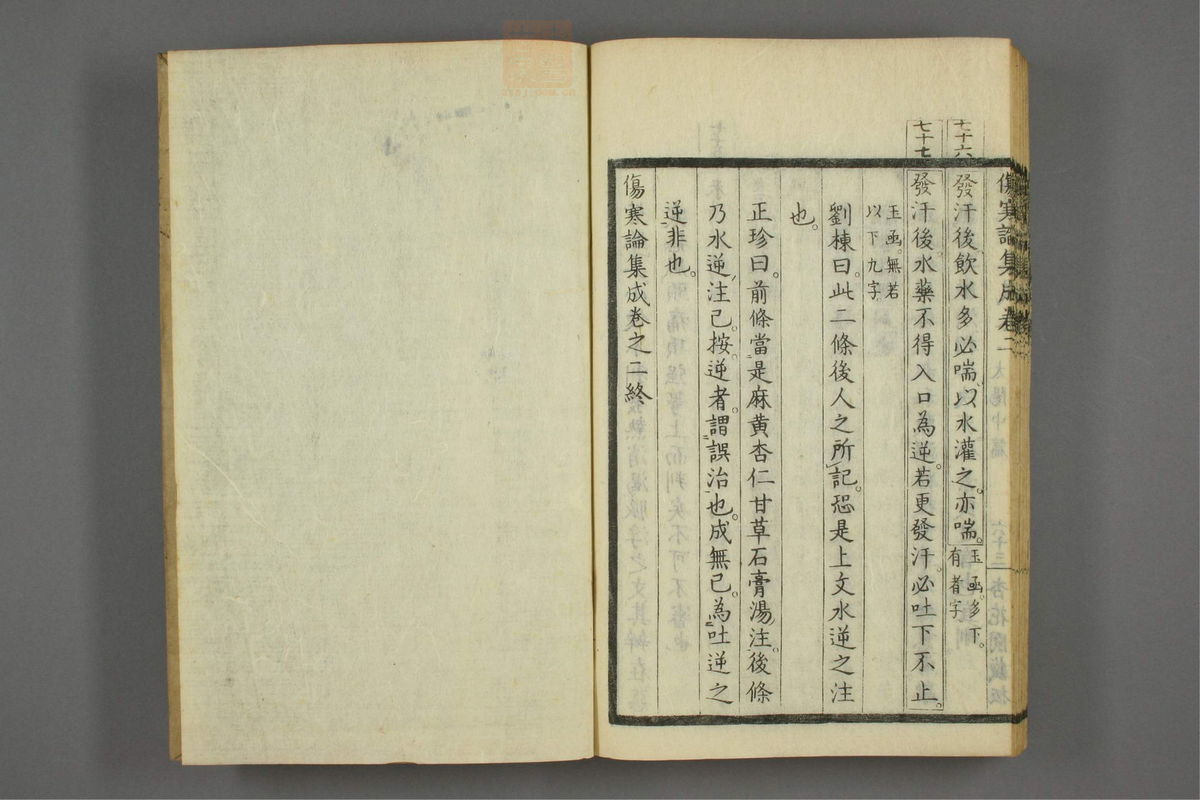 傷寒論集成卷二
太陽中篇
六十三
杏花園藏板
七十六
發汗後飲水多必喘。以水灌之。亦喘。
玉函。多下。
有者字
七十七
發汗後。水藥不得入口為逆。若更發汗。必吐下不止。
玉函。無若
以下九字
劉棟曰。此二條後人之所記。恐是上文水逆之注
也。
正珍曰。前條當是麻黃杏仁甘草石膏湯注。後條
乃水逆注已。按逆者。謂誤治也。成無已。為吐逆之
逆非也。
傷寒論集成卷之二終